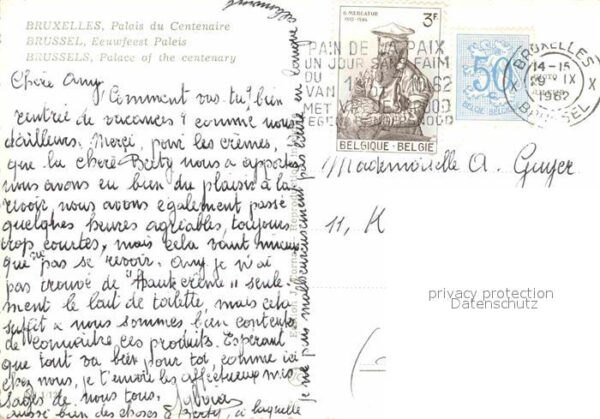 BRUXELLES, Palais du Centenaire
BRUSSEL, Eeuwfeest Paleis
BRUSSELS, Palace of the centenary
Chère Any,
Comment vas-tu? bien
rentrée de vacances? comme nous
d'ailleurs. Merci, pour les crèmes,
que la chère Betty nous a apporté
nous avons eu bien du plaisir à la
revoir, nous avons également passé
quelques heures agréables, toujours
trop courtes, mais cela vaut mieux
que ne pas se revoir. Any je n'ai
pas trouvé de "Hautecrème" seule-
ment le lait de toilette, mais cela
suffit & nous sommes bien contentes
de connaitre ces produits. Espérant
que tout va bien pour toi, comme ici
chez nous, je t'envoie les affectueux mes-
sages de nous tous.
aussi bien des choses à Betty, à laquelle
je ne puis malheureusement pas écrire en langue
G. MERCATOR
1512-1594
3F
BELGIQUE-BELGIE
50
PAIN DE LA PAIX
UN JOUR SANS FAIM
DU
VAN
MET
BRUXELLES
14-15
1962
BRUSSEL
X X
Mademoiselle A. Guyer
11, K
privacy protection
Datenschutz